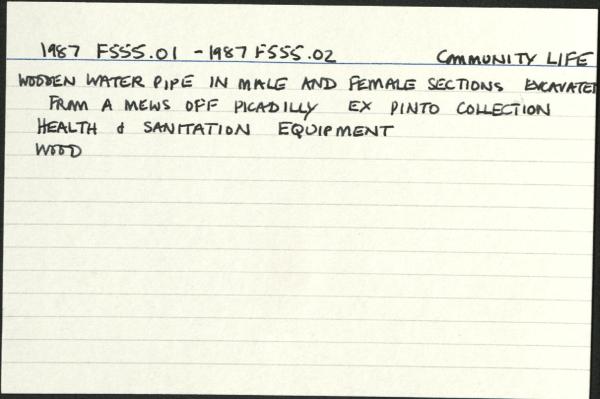 1987 F555.01 - 1987 F555.02 COMMUNITY LIFE
WOODEN WATER PIPE IN MALE AND FEMALE SECTIONS EXCAVATED
FROM A MEWS OFF PICADILLY EX PINTO COLLECTION
HEALTH & SANITATION EQUIPMENT
WOOD